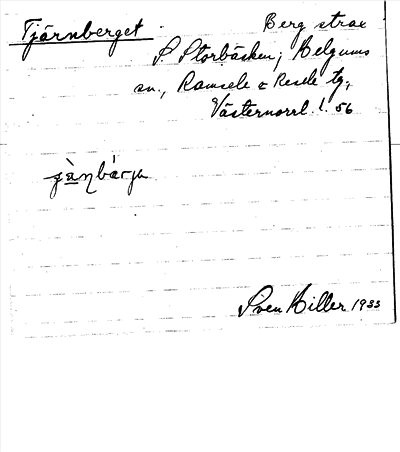 Tjärnberget. Berg strax
S. Storbäcken; Helgums
sn., Ramsele & Resele tg,
Västernorrl. l. 56
Sven Hiller 1933